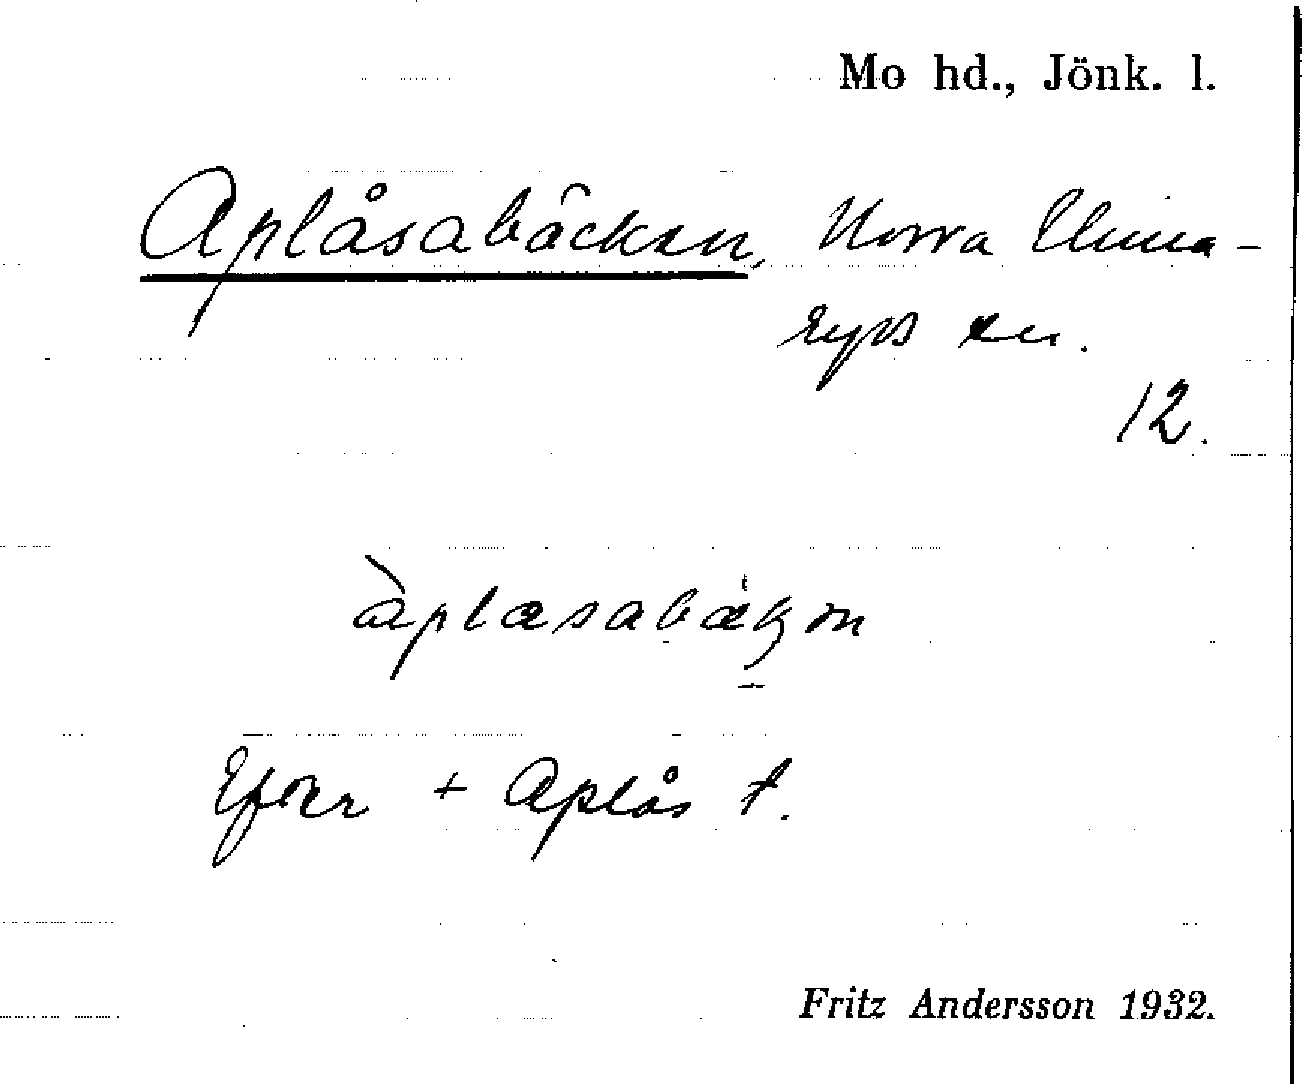 Mo hd., Jönk. l.
Aplåsabäcken, Norra Unna-
ryds sn.
12.
àplasabäkən
Efter + Aplås t.
Fritz Andersson 1932.